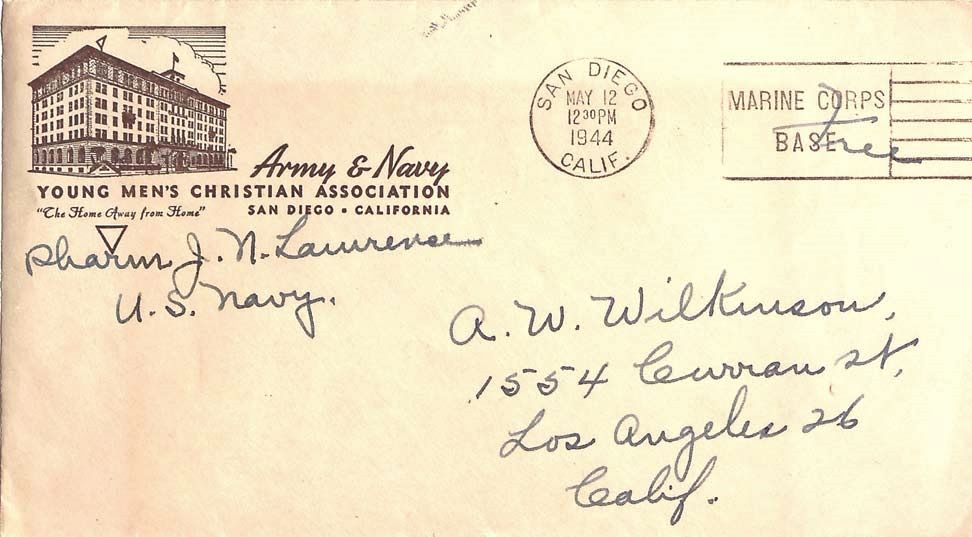 Army & Navy
YOUNG MEN'S CHRISTIAN ASSOCIATION
"The Home Away from Home" SAN DIEGO • CALIFORNIA
Pharm J. N. Lawrense
U.S. Navy.
SAN DIEGO
MAY 12
12 30 PM
1944
CALIF.
MARINE CORPS
BASE
Free
A. W. Wilkinson,
1554 Curran St,
Los Angeles 26
Calif.